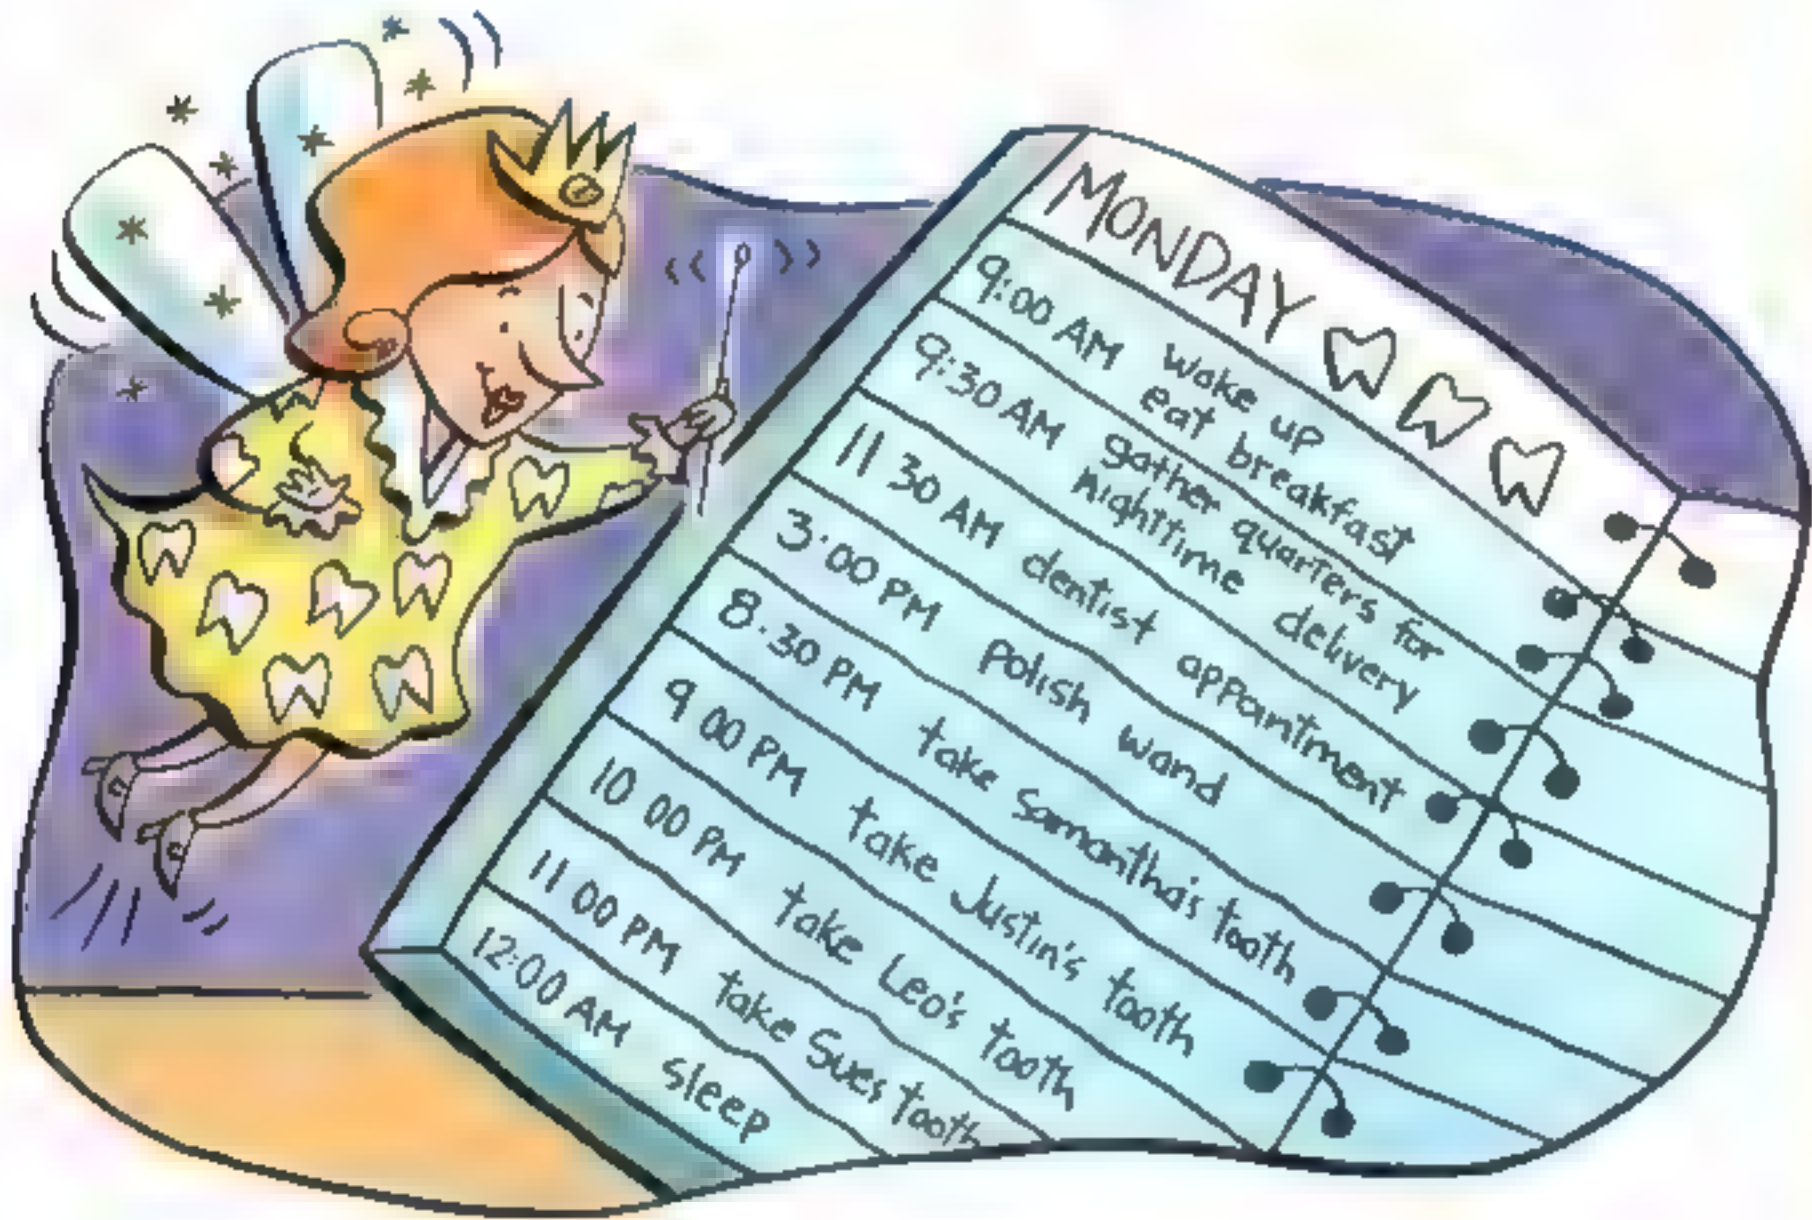 MONDAY
9:00 AM wake up
eat breakfast
9:30 AM gather quarters for
nighttime delivery
11 30 AM dentist appointment
3:00 PM polish wand
8.30 PM take Samantha's tooth
9 00 PM take Justin's tooth
10 00 PM take Leo's tooth
11 00 PM take Sues tooth
12:00 AM sleep